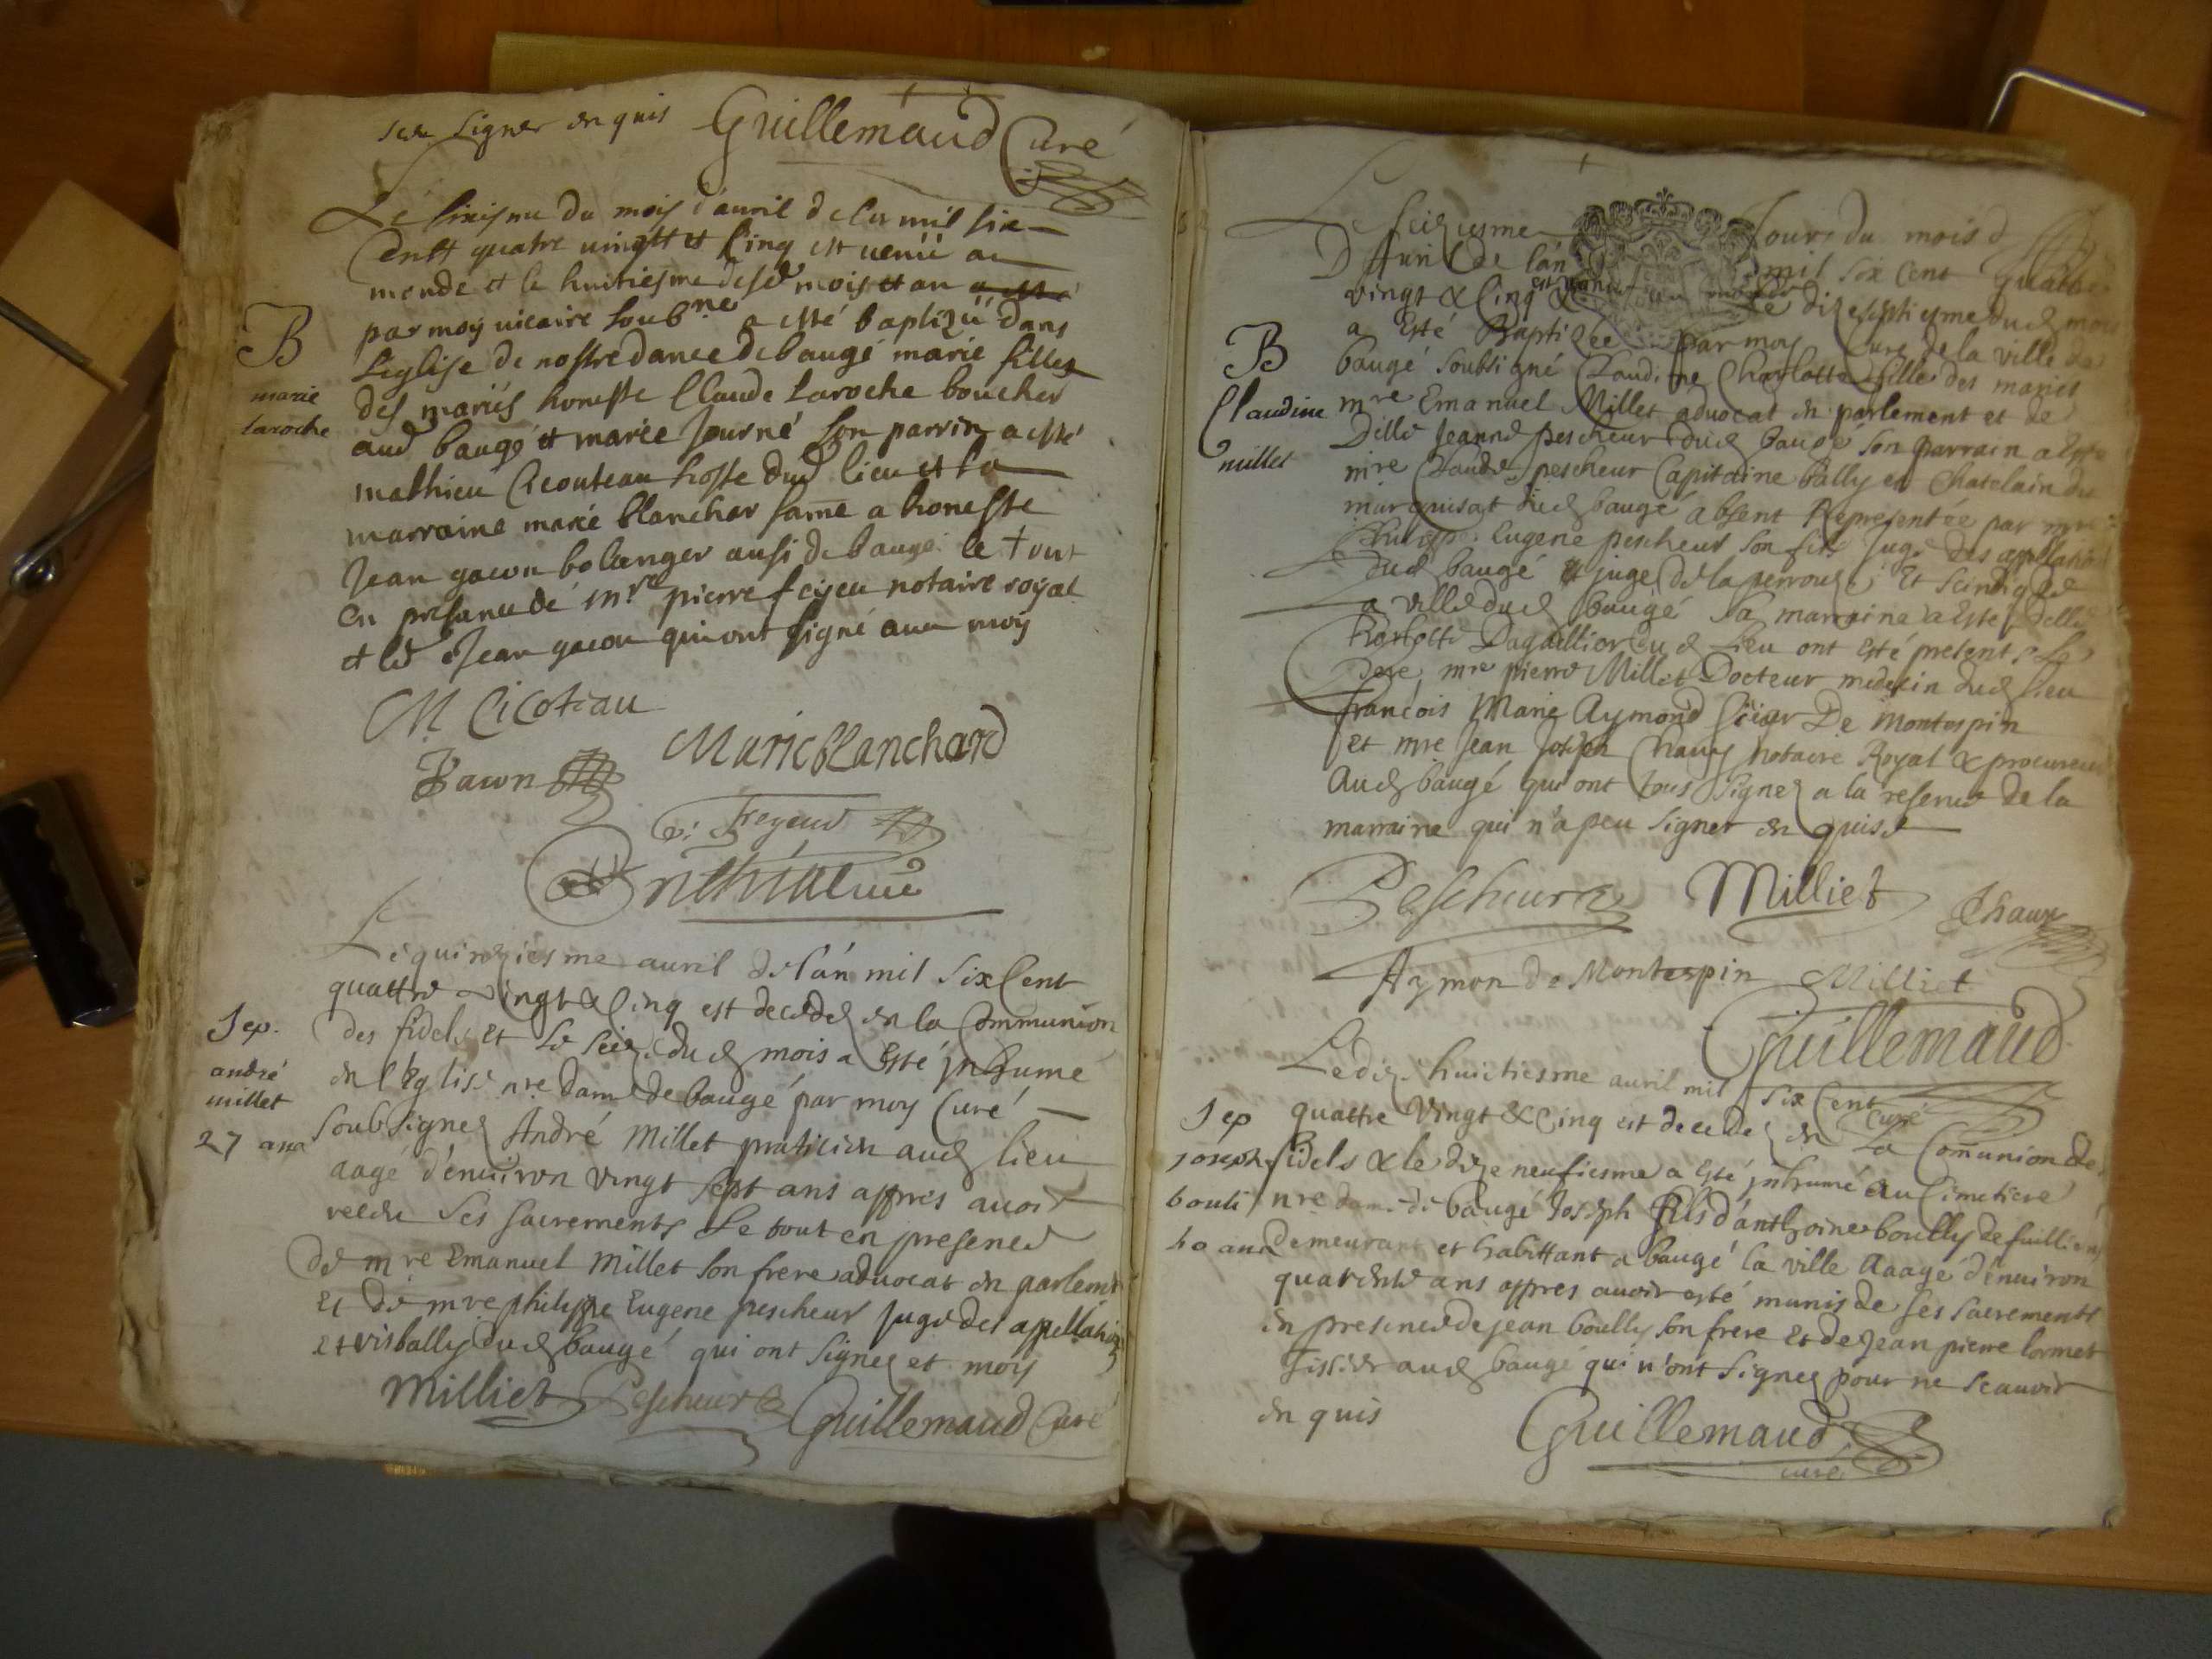 signer en quis Guillemaud Curé
Le du mois d'auril de l'an mil six
Centt quatre uingtt et Cinq est venüe au
monde et le huitiesme desd mois et an a esté
par moÿ uicaire soub.ne a esté baptizü dans
B
L'eglise de nostre dame de baugé marie fillez
marie
des mariés honeste Claude Laroche boucher
Laroche
aud baugé et marie Journé son parrin a esté
mathieu Cicouteau hoste dud lieu et sa
marraine marie blanchar fame a honeste
Jean gacon bolanger ausi de baugé le tout
en presance de m.re pierre notaire royal
et led Jean gacon qui ont signé auec moy
M Cicoteau
Marie blanchard
Gacon
Le quinziesme auril de l'an mil six Cent
quattre Vingt & Cinq est decedez en la Communion
Sep.
des fidels et Le seiz.e dud mois a Esté jnhumé
andré
en l'Eglise n.re Dame de baugé par moy Curé
millet
soubsignez André Millet praticien aud lieu
27 ans
aagé d'enuiron Vingt sept ans appres auoir
receu ses sacrements Le tout en presence
de mre Emanuel Millet son frere aduocat en parlemt
Et de mre philippe Eugene pescheur Juge des appellations
et visbally dud baugé qui ont signez et moy
Milliet Pescheur Guillemaud Curé
Le seiziesme Jour du mois
D'Auril de l'an mil six Cent quattre
vingt & Cinq est venue au monde & le dizeseptiesme dud mois
a Esté Baptizée par moy Curé de la Ville de
B
baugé soubsigné Claudine Charlotte fille des mariés
Claudine
mre Emanuel Millet aduocat en parlement et de
millet
Delle Jeanne pescheur dud baugé son parrain a Esté
mre Claude pescheur Capitaine bally et Chatelain du
marquisat dud baugé absent Representée par mre
Philippe Eugene pescheur son fils Juge des appellations
dud baugé & juge de la perrouze Et scindic de
la ville dud baugé sa marraine a Este delle
Charlotte Dagallier dud Lieu ont Esté present Le
pere, mre pierre Millet Docteur medecin dud lieu
François Marie Aymond sieur De Montespin
Et mre Jean Joseph Chaux notaire Royal & procureur
Aud baugé qui ont tous signez a la reserue de la
marraine qui n'a peu signer en quise
Pescheur Milliet Chaux
Aymon de Montespin Milliet
Guillemaud
Curé
Le diz huictiesme auril mil six Cent
Sep
quattre Vingt & Cinq est decedez en La Comunion des
joseph
fidels & le dize neufiesme a Esté jnhumé au Cimetiere
bouli
nre dame de baugé Joseph fils d'anthoine boully de fuillien
40 ans
demeurant et habittant a baugé la ville Aaagé d'enuiron
quarente ans appres auoir esté munis de ses sacrements
en presence de jean boully son frere Et de Jean pierre Cormet
tissier aud baugé qui n'ont signez pour ne scauoir
en quis
Guillemaud
curé